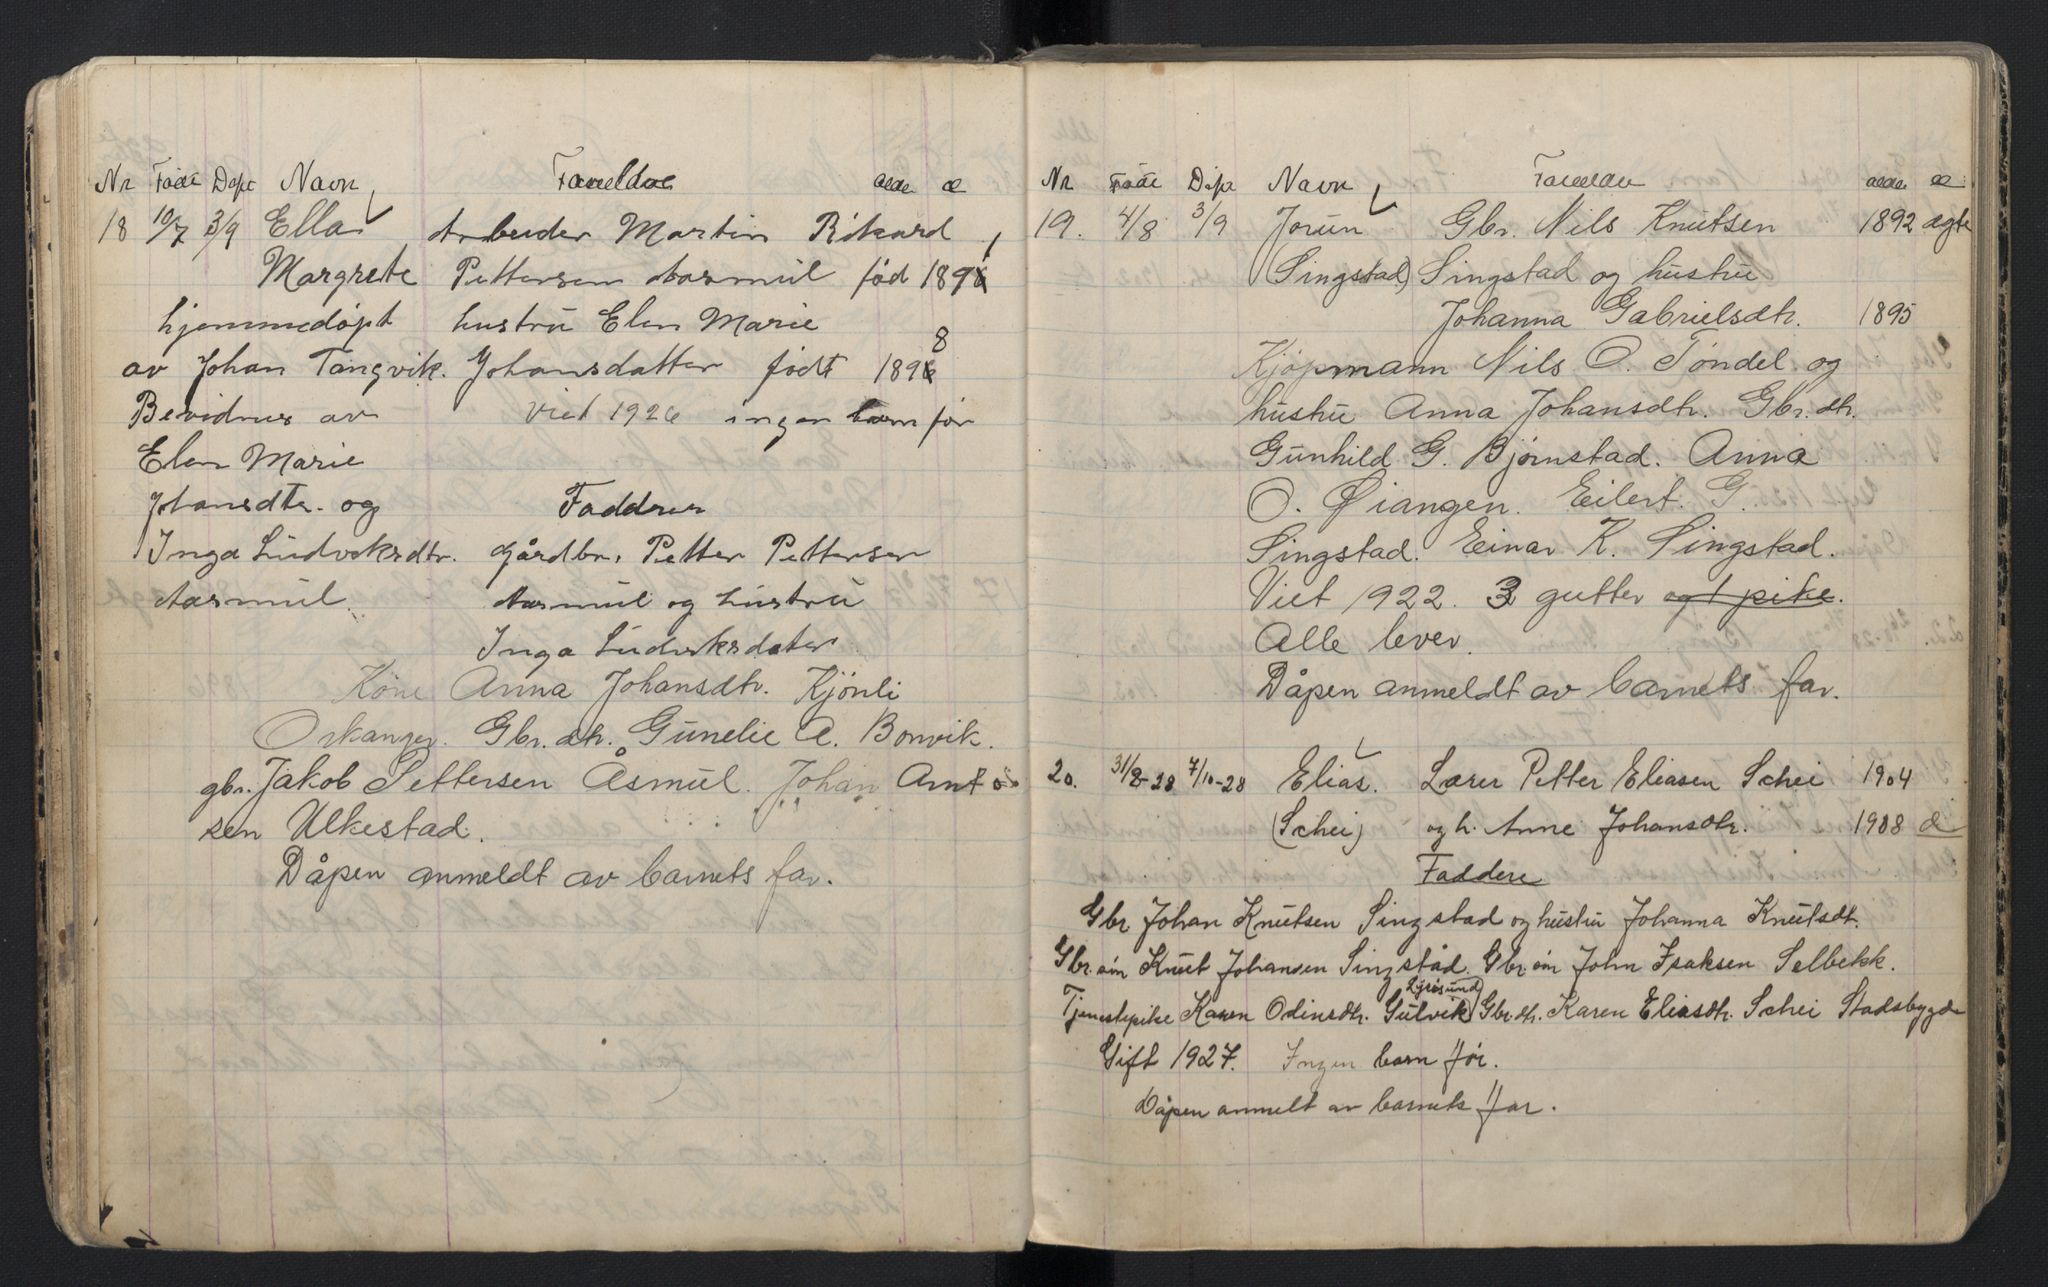 Nr Født Døpt Navn Foreldre alder æ
18 10/7 3/9 Ella Arbeider Martin Rikard
Margrete Pettersen Aasmul fød 1891
hjemmedøpt hustru Elen Marie
av Johan Tangvik. Johansdatter født 1898
Bevidnes av Viet 1926 ingen barn før
Elen Marie
Johansdtr. og Faddere
Inga Ludvksdtr. gårdbr. Petter Pettersen
Aasmul Aasmul og hustru
Inga Ludvksdater
Kone Anna Johansdtr. Kjönli
Orkanger. Gbr. dtr. Gunelie A. Bonvik.
gbr. Jakob Pettersen Åsmul. Johan Arnt
sen Ulkestad.
Dåpen anmeldt av barnets far.
Nr. Født Døpt Navn Foreldre alder æ
19. 4/8 3/9 Jorun Gbr. Nils Knutsen 1892 ægte
(Singstad) Singstad og hustru
Johanna Gabrielsdtr. 1895
Kjøpmann Nils O. Töndel og
hustru Anna Johansdtr. Gbr. dtr.
Gunhild G. Bjørnstad. Anna
O. Øiangen. Eilert. G.
Singstad. Einar K. Singstad.
Viet 1922. 3 gutter og 1 pike.
Alle lever.
Dåpen anmeldt av barnets far.
20. 31/8-28 7/10-28 Elias. Lærer Petter Eliasen Schei 1904
(Schei) og h. Anne Johansdtr. 1908 æ
Faddere
Gbr Johan Knutsen Singstad og hustru Johanna Knutsdt.
Gbr. søn Knut Johansen Singstad. Gbr. søn John Isaksen Selbekk.
Lysøsund)
Tjenestepike Karen Odinsdtr. Gulvik Gbr. dtr. Karen Eliasdtr. Schei Stadsbygde
Gift 1927. Ingen barn før.
Dåpen anmelt av barnets far.